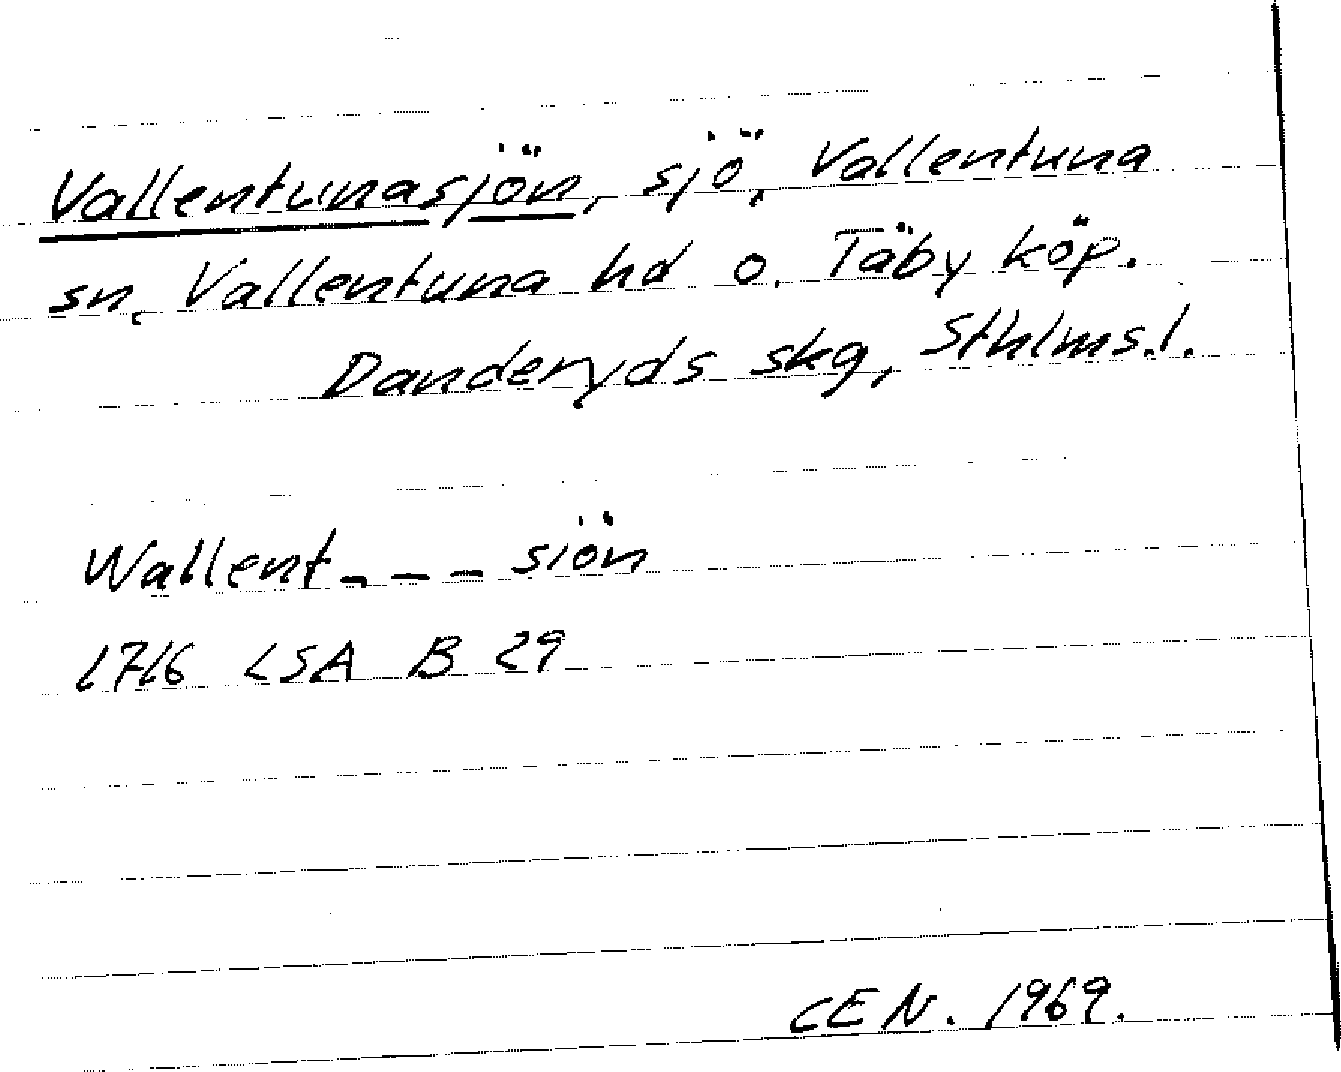 Vallentunasjön, sjö, Vallentuna
sn, Vallentuna hd o. Täby köp.
Danderyds skg, Sthlms.l.
Wallent--- siön
1716 LSA B 29
CEN. 1969.